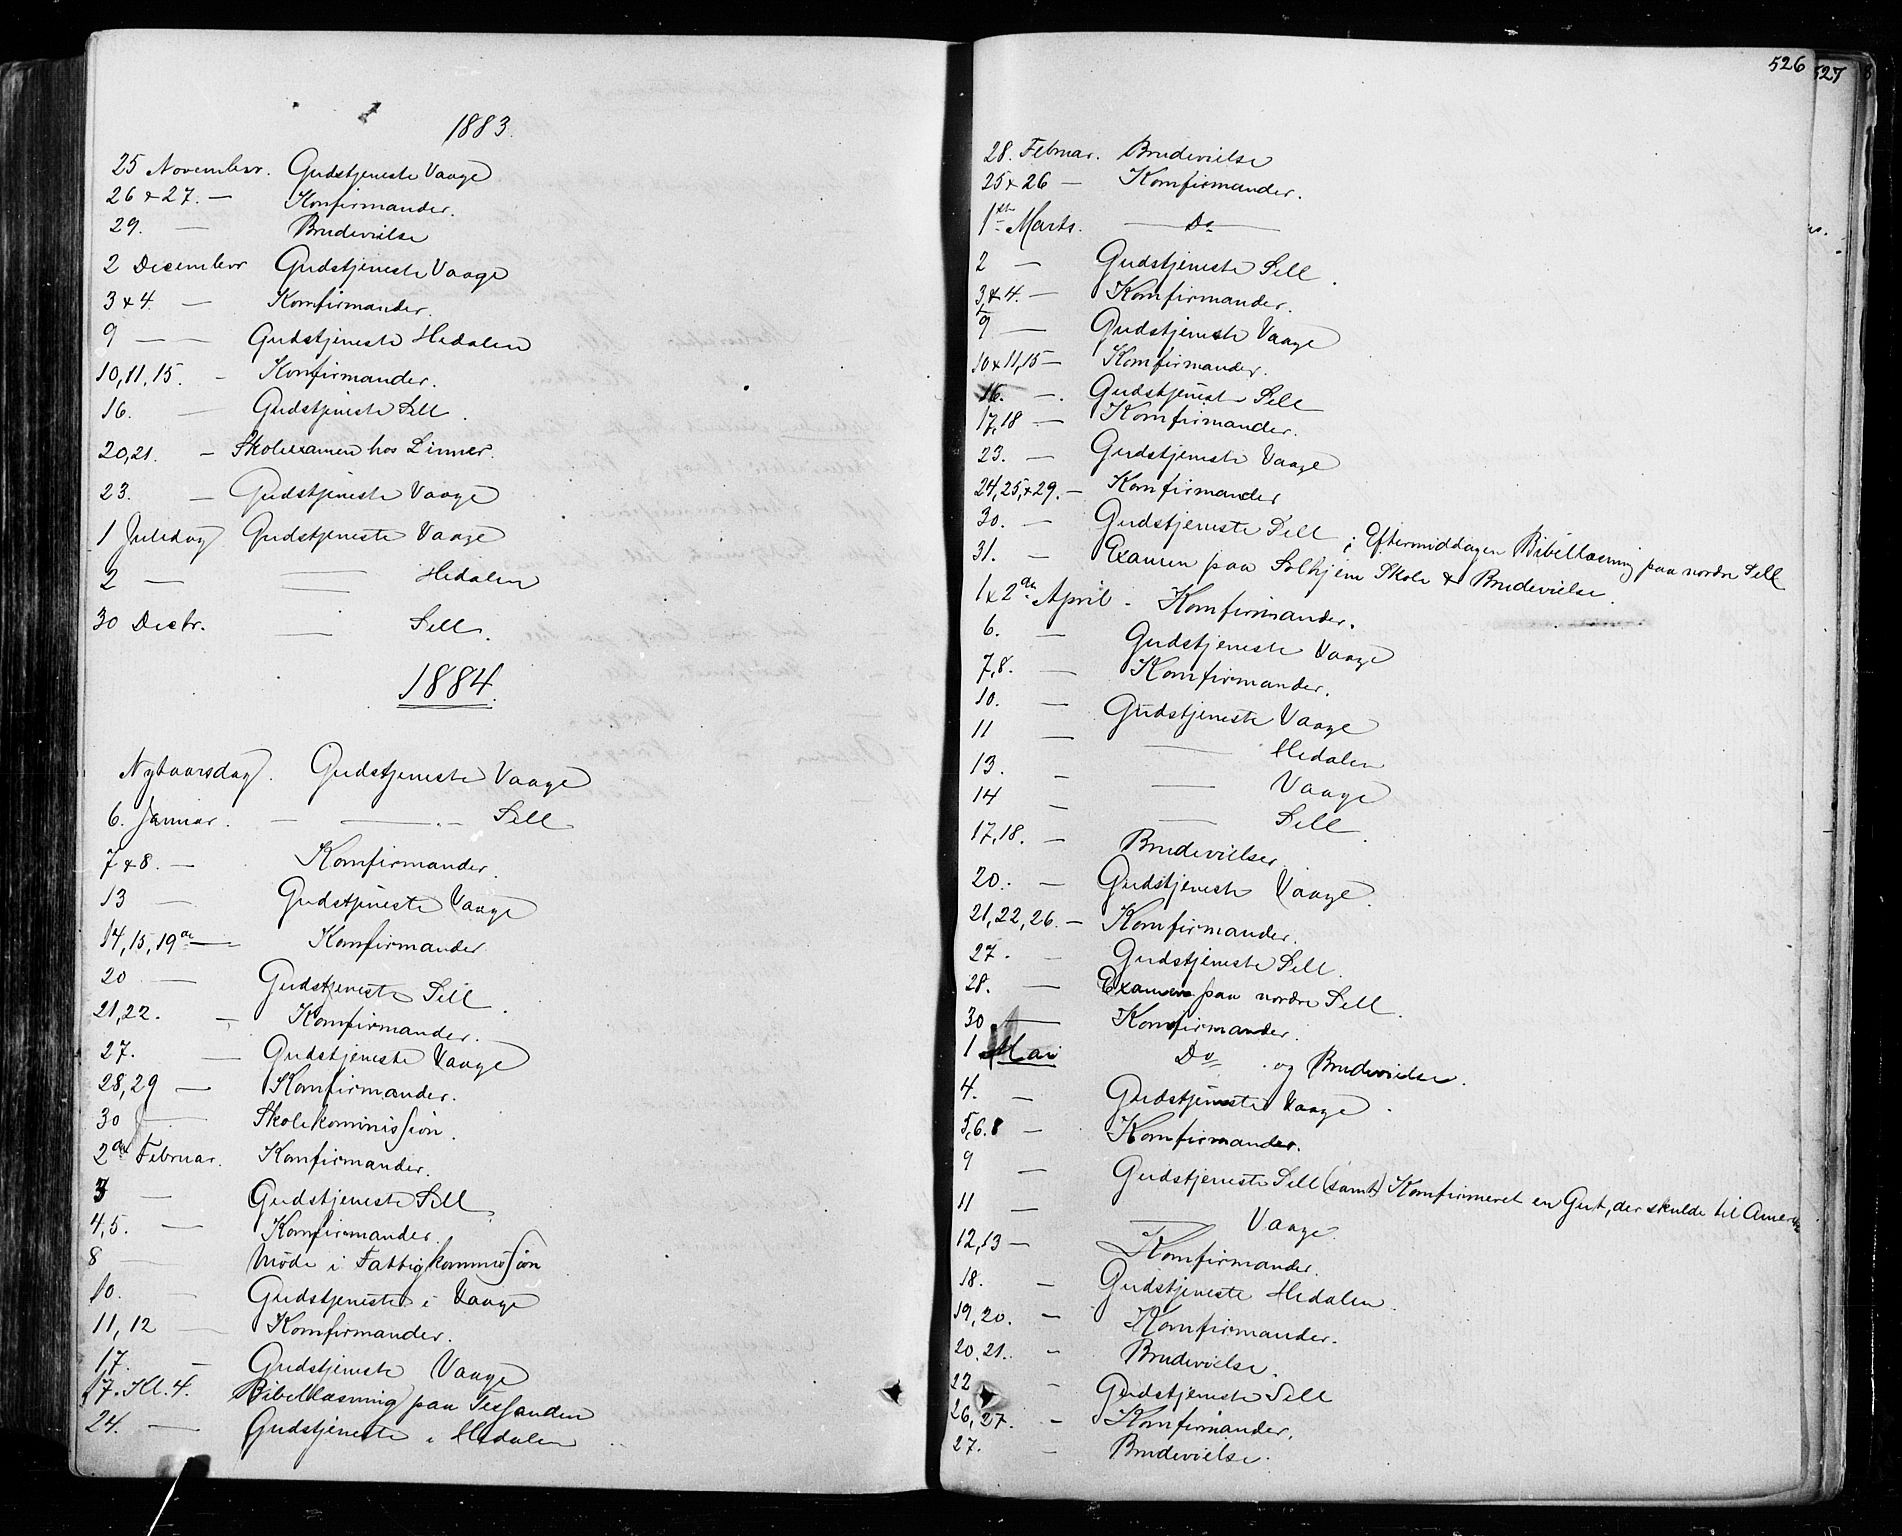 1883.
25 November. Gudstjeneste Vaage
26 & 27. — Konfirmander.
29. — Brudevielse
2 December Gudstjeneste Vaage
3 & 4. — Komfirmander.
9 — — Gudstjeneste Hedalen
10, 11, 15. — Konfirmander.
16. — Gudstjeneste Sell.
20, 21. — Skoleexamen hos Linner.
23. — Gudstjeneste Vaage
1 Juledag Gudstjeneste Vaage
2 — — Hedalen
30 Decbr. — Sell.
1884.
Nytaarsdag. Gudstjeneste Vaage
6. Januar. — — Sell
7 & 8. — Komfirmander.
13 — Gudstjeneste Vaage
14, 15, 19de — Komfirmander
20 — Gudstjeneste Sell.
21, 22. — Komfirmander.
27. — Gudstjeneste Vaage
28, 29 — Komfirmander.
30 — Skolekommission.
2den Februar. Komfirmander.
3 — Gudstjeneste Sell.
4, 5. — Komfirmander.
8 — Møde i Fattigkommission
10. — Gudstjeneste i Vaage
11, 12 — Komfirmander.
17. — Gudstjeneste Vaage
17. Kl. 4. Bibellæsning paa Tessanden
24. — Gudstjeneste i Hedalen
526 527
28. Februar. Brudevielse
25 & 26 — Komfirmander.
1ste Marts. — Do —
2 — Gudstjeneste Sell.
3 & 4. — Komfirmander.
9 — Gudstjeneste Vaage
10 & 11, 15 — Komfirmander.
16. — Gudstjenest Sell
17, 18 — Komfirmander.
23. — Gudstjeneste Vaage
24, 25, & 29. — Komfirmander
30. — Gudstjeneste Sell; Eftermiddagen Bibellæsning paa nordre Sell
31. — Examen paa Solhjem Skole & Brudevielse.
1 & 2den April. Komfirmander.
6. — Gudstjeneste Vaage
7, 8. — Komfirmander.
10. — Gudstjeneste Vaage
11 — — Hedalen
13. — — Vaage
14 — — Sell.
17, 18. — Brudevielser
20. — Gudstjeneste Vaage.
21, 22, 26. — Komfirmander.
27. — Gudstjeneste Sell.
28. — Examen paa nordre Sell.
30 — Komfirmander.
1 Mai Do og Brudevielse.
4. — Gudstjeneste Vaage.
5, 6. 8 — Komfirmander.
9 — Gudstjeneste Sell (samt) Komfirmeret en Gut, der skulde til Amerika
11 — — Vaage.
12, 13 — Komfirmander.
18. — Gudstjeneste Hedalen.
19, 20. — Komfirmander.
20. 21. — Brudevielse.
22 — Gudstjeneste Sell
26, 27. — Komfirmander.
27. — Brudevielse.